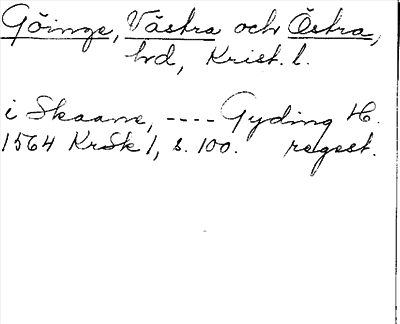 Göinge, Västra och Östra,
hd, Krist. l.
i Skaane, ---- Gyding H.
1564 KrSk 1, s. 100. regest.